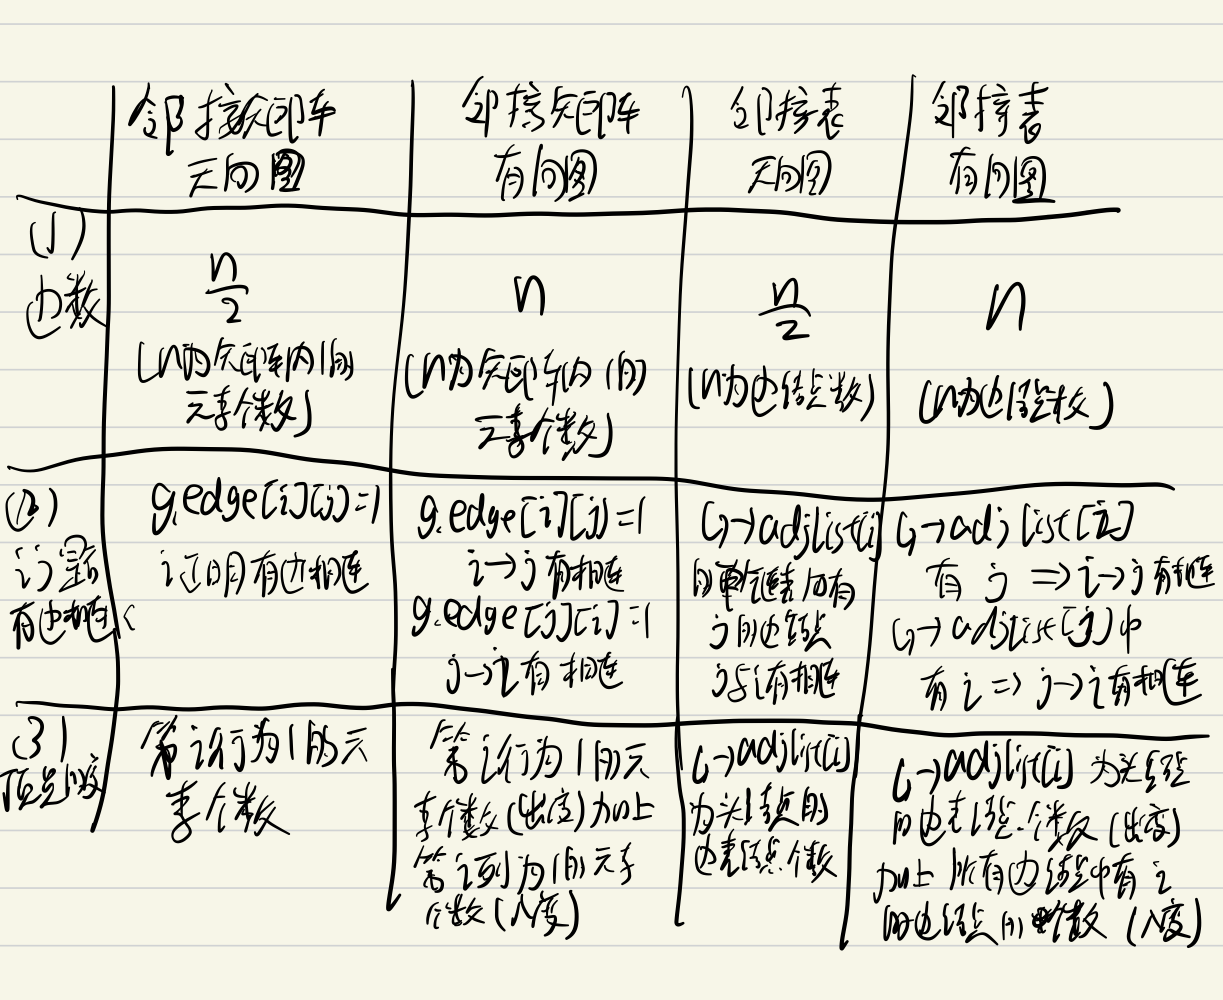 邻接矩阵
无向图
邻接矩阵
有向图
邻接表
无向图
邻接表
有向图
(1)
边数
n/2
(n为矩阵内1的
元素个数)
n
(n为矩阵内1的
元素个数)
n/2
(n为边结点数)
n
(n为边结点数)
(2)
i j 是否
有边相连
g.edge[i][j]=1
i j 间有边相连
g.edge[i][j]=1
i→j 有相连
g.edge[j][i]=1
j→i 有相连
G→adjlist[i]
的单链表内有
j的边结点
j与i有相连
G→adjlist[i]
有 j ⇒ i→j 有相连
G→adjlist[j]中
有 i ⇒ j→i 有相连
(3)
顶点i的度
第i行为1的元
素个数
第i行为1的元
素个数(出度)加上
第i列为1的元素
个数(入度)
G→adjlist[i]
为头结点的
边表结点个数
G→adjlist[i] 为头结点
的边表结点个数(出度)
加上 所有边结点中有 i
的边结点的个数 (入度)